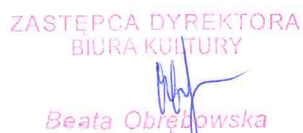 ZASTĘPCA DYREKTORA
BIURA KULTURY
Beata Obrębowska